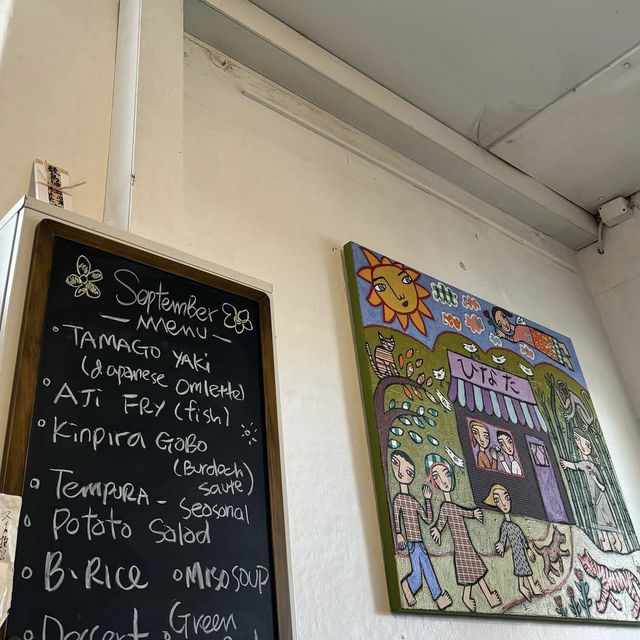 September
— menu —
TAMAGO YAKI
(Japanese omlette)
AJI FRY (fish)
Kinpira GOBO
(Burdoch)
saute
TEMPURA - seasonal
Potato Salad
B. Rice
Miso soup
Dessert
Green
ひなた